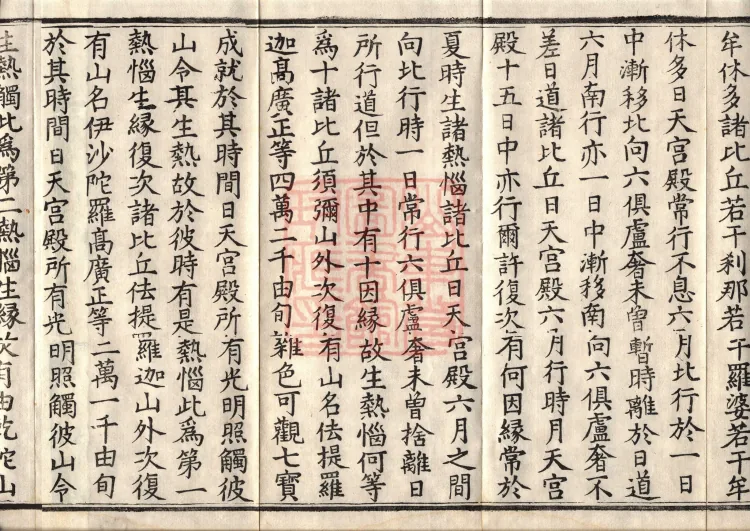 牟休多諸比丘若干刹那若干羅婆若干牟
休多日天宮殿常行不息六月北行於一日
中漸移北向六俱盧奢未曾暫時離於日道
六月南行亦一日中漸移南向六俱盧奢不
差日道諸比丘日天宮殿六月行時月天宮
殿十五日中亦行爾許復次有何因緣常於
夏時生諸熱惱諸比丘日天宮殿六月之間
向北行時一日常行六俱盧奢未曾捨離日
所行道但於其中有十因緣故生熱惱何等
爲十諸比丘須彌山外次復有山名佉提羅
迦高廣正等四萬二千由旬雜色可觀七寶
成就於其時間日天宮殿所有光明照觸彼
山令其生熱故於彼時有是熱惱此爲第一
熱惱生緣復次諸比丘佉提羅迦山外次復
有山名伊沙陀羅高廣正等二萬一千由旬
於其時間日天宮殿所有光明照觸彼山令
生熱觸此爲第二熱惱生緣次有由乾陀山